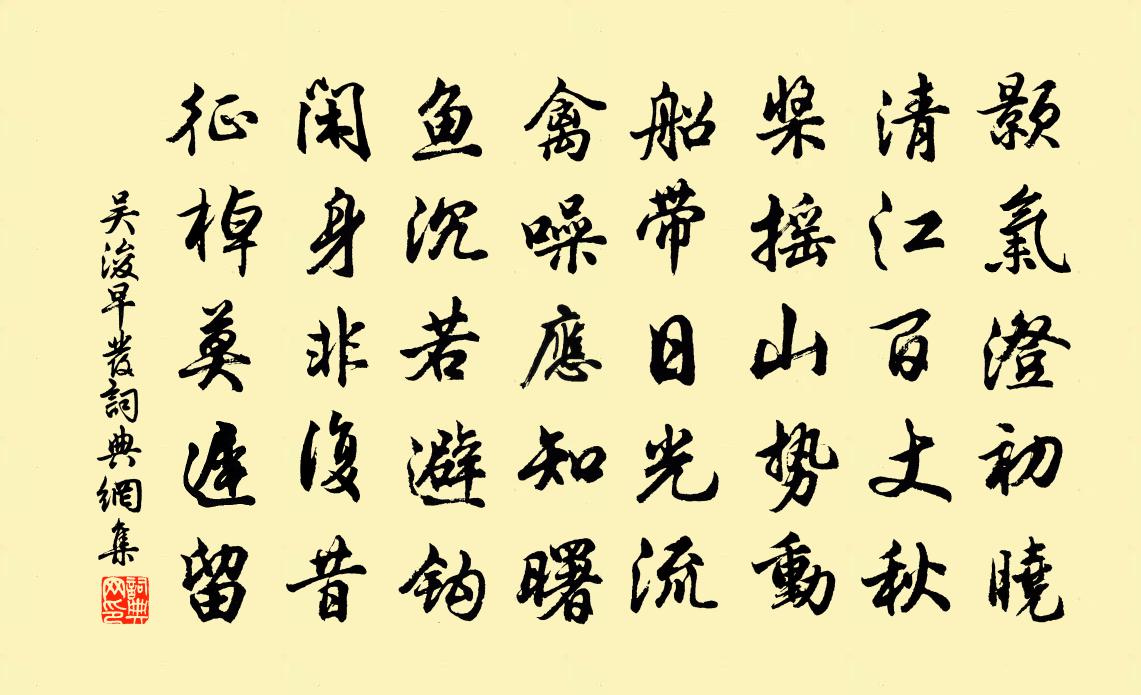 顥氣澄初曉
清江百丈秋
槳摇山势動
船带日光流
禽噪應知曙
鱼沉若避钩
闲身非復昔
征棹莫遲留
吴浚早发詞典網集
詞典
网印